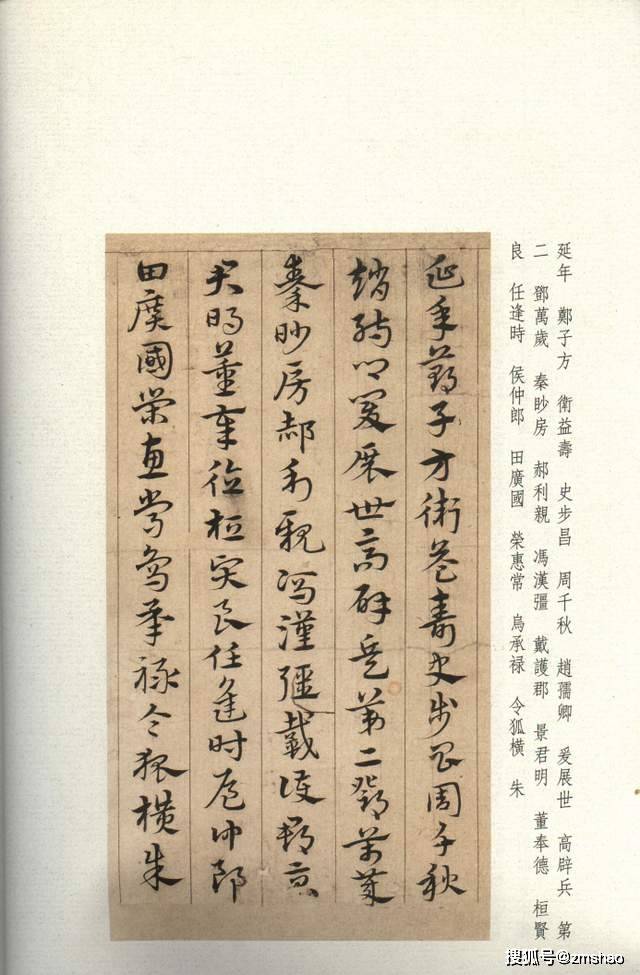 延年 鄭子方 衛益壽 史步昌 周千秋 趙孺卿 爰展世 高辟兵 第
二 鄧萬歲 秦眇房 郝利親 馮漢彊 戴護郡 景君明 董奉德 桓賢
良 任逢時 侯仲郎 田廣國 榮惠常 烏承禄 令狐橫 朱
延年鄭子方衛益壽史步昌周千秋
趙孺卿爰展世高辟兵第二鄧萬歲
秦眇房郝利親馮漢彊戴護郡景
君明董奉德桓賢良任逢時侯仲郎
田廣國榮惠常烏承禄令狐橫朱
搜狐号@zmshao